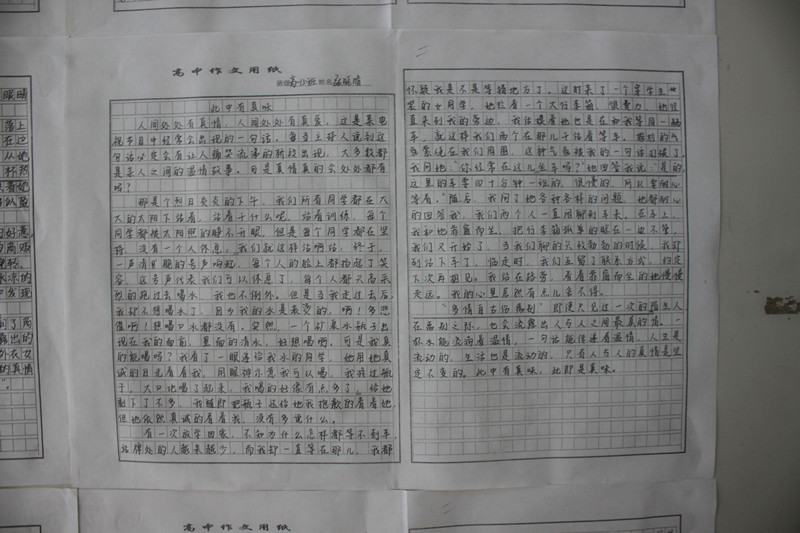 高中作文用纸
此中有真味
人间处处有真情，人间处处有真爱，这是某电
视节目中经常会出现的一句话，每当主持人说到这
句话必定会有让人痛哭流涕的阶段出现，大多数都
是亲人之间的温情故事。可是真情真的会处处都有
吗？
那是个烈日炎炎的下午，我们所有同学都在大
大的太阳下站着，站着干什么呢，站着训练，每个
同学都被太阳照的睁不开眼，但是每个同学都在坚
持，没有一个人休息。我们就这样站啊站，终于，
一声清旷的号声响起，每个人的脸上都扬起了笑
容，这号声代表我们可以休息了，每个人都兴高采
烈的跑过去喝水，我也不例外。但是当我走过去后，
我却不想喝水了，因为我的水是烫的，啊！多想
喝口水都没有，突然，一个矿泉水瓶子出
现在我的面前，里面的清水，好想喝啊，可是我真
的能喝吗？我看了一眼递给我水的同学，他用他真
诚的目光看着我，用眼神示意我可以喝，我接过瓶
子，大口地喝了起来，我喝的好像有点多了，给他
剩了了不多，我随即把瓶子还给他我抱歉的看着他，
但他依然真诚的看着我，没有多说什么。
有一次放学回家，不知为什么怎样都等不到车，
站牌处的人越来越少，而我却一直等在那儿，我都
怀疑我是不是等错地方了。这时来了一个学生
装的女同学，她拉着一个大行李箱，很费力，她径
直来到我的旁边，我估摸着她也是在和我等同一辆
车，就这样我们两个在那儿干站着等车。尴尬的气
氛萦绕在我们周围，这种气氛被我的一句话打破了，
我问她“你经常在这儿坐车吗？”她回答我说“是的
这里的车要四十分钟一班的，很慢的，所以要耐心
等着，”随后，我问了她各种各样的问题，她都耐心
的回答我，我们两个人一直闲聊到车来，在车上，
我和她也肩靠而坐，把行李箱孤单的晾在一边不管，
我们又开始了，当我们聊的兴致勃勃的时候，我却
到站下车了，临走时，我们互留了联系方式，约定
下次再相见。我站在路旁，看着靠窗而坐的她慢慢
走远。我的心里居然有点儿舍不得。
“多情自古伤离别”即便只见过一次的陌生人
在离别之际，也会流露出人与人之间最真的情。一
杯水能流淌着温情，一句话能传递着温情，人生是
流动的，生活也是流动的，只有人与人的真情是坚
定不变的。此中有真味，此即是真味。
高中作文用纸